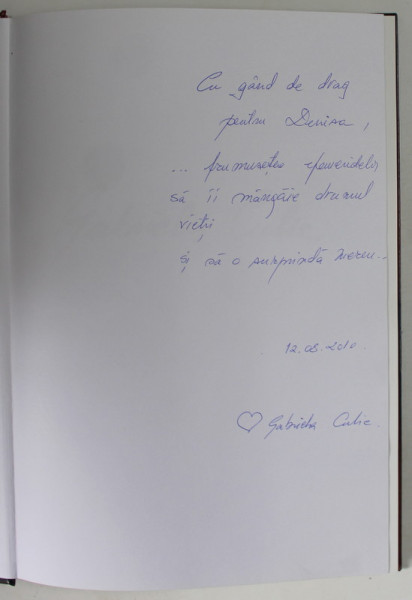 Cu gând de drag
pentru Denisa,
... frumusețea efemeridelor
să îi mângâie drumul
vieții
și să o surprindă mereu...
12.08.2010.
♡ Gabriela Culic.